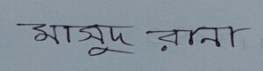 মাসুদ রানা